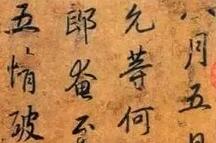 八月五日
允等何
郎奄至
五情破